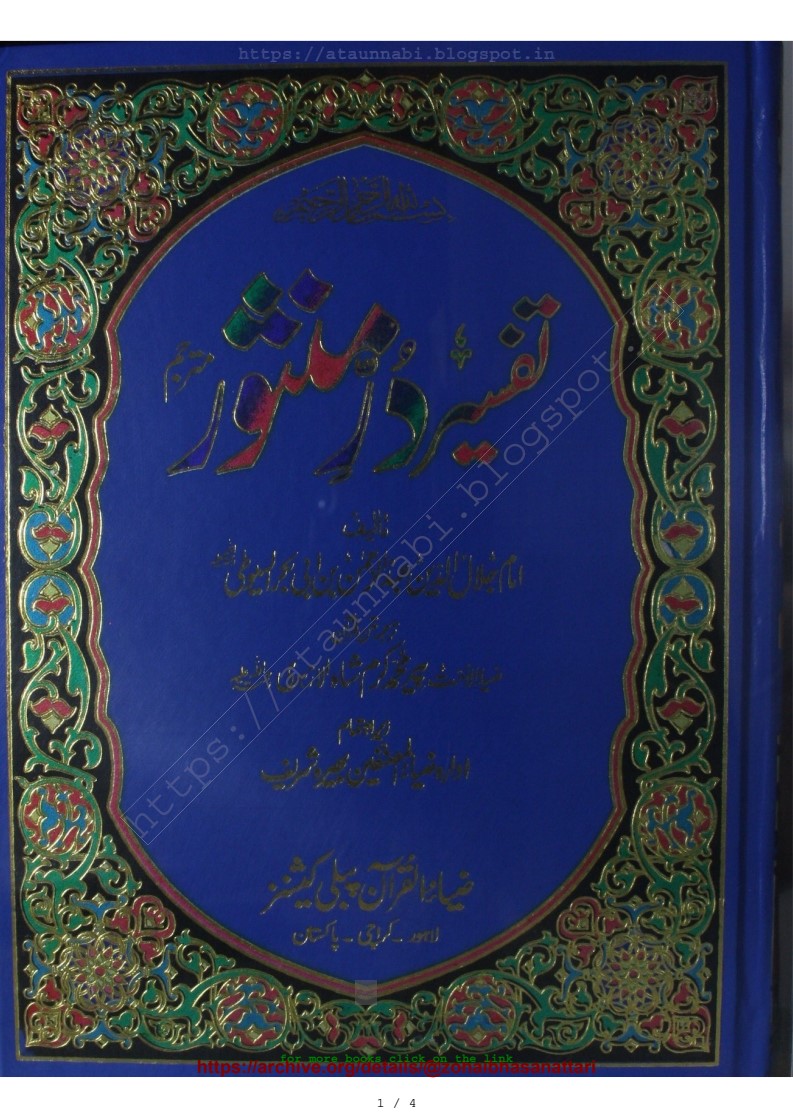 https://ataunnabi.blogspot.in
بسم الله الرحمن الرحيم
تفسیر دُرِّ منثور
مترجم
تالیف
امام جلال الدین عبدالرحمٰن بن ابی بکر السیوطی
ضیاءالامت پیر محمد کرم شاہ الازہری
زیر اہتمام
ادارہ ضیاء المصنفین بھیرہ شریف
ضیاءُ القرآن پبلی کیشنز
لاہور - کراچی - پاکستان
https://ataunnabi.blogspot.
for more books click on the link
https://archive.org/details/@zohaibhasanattari
1 / 4